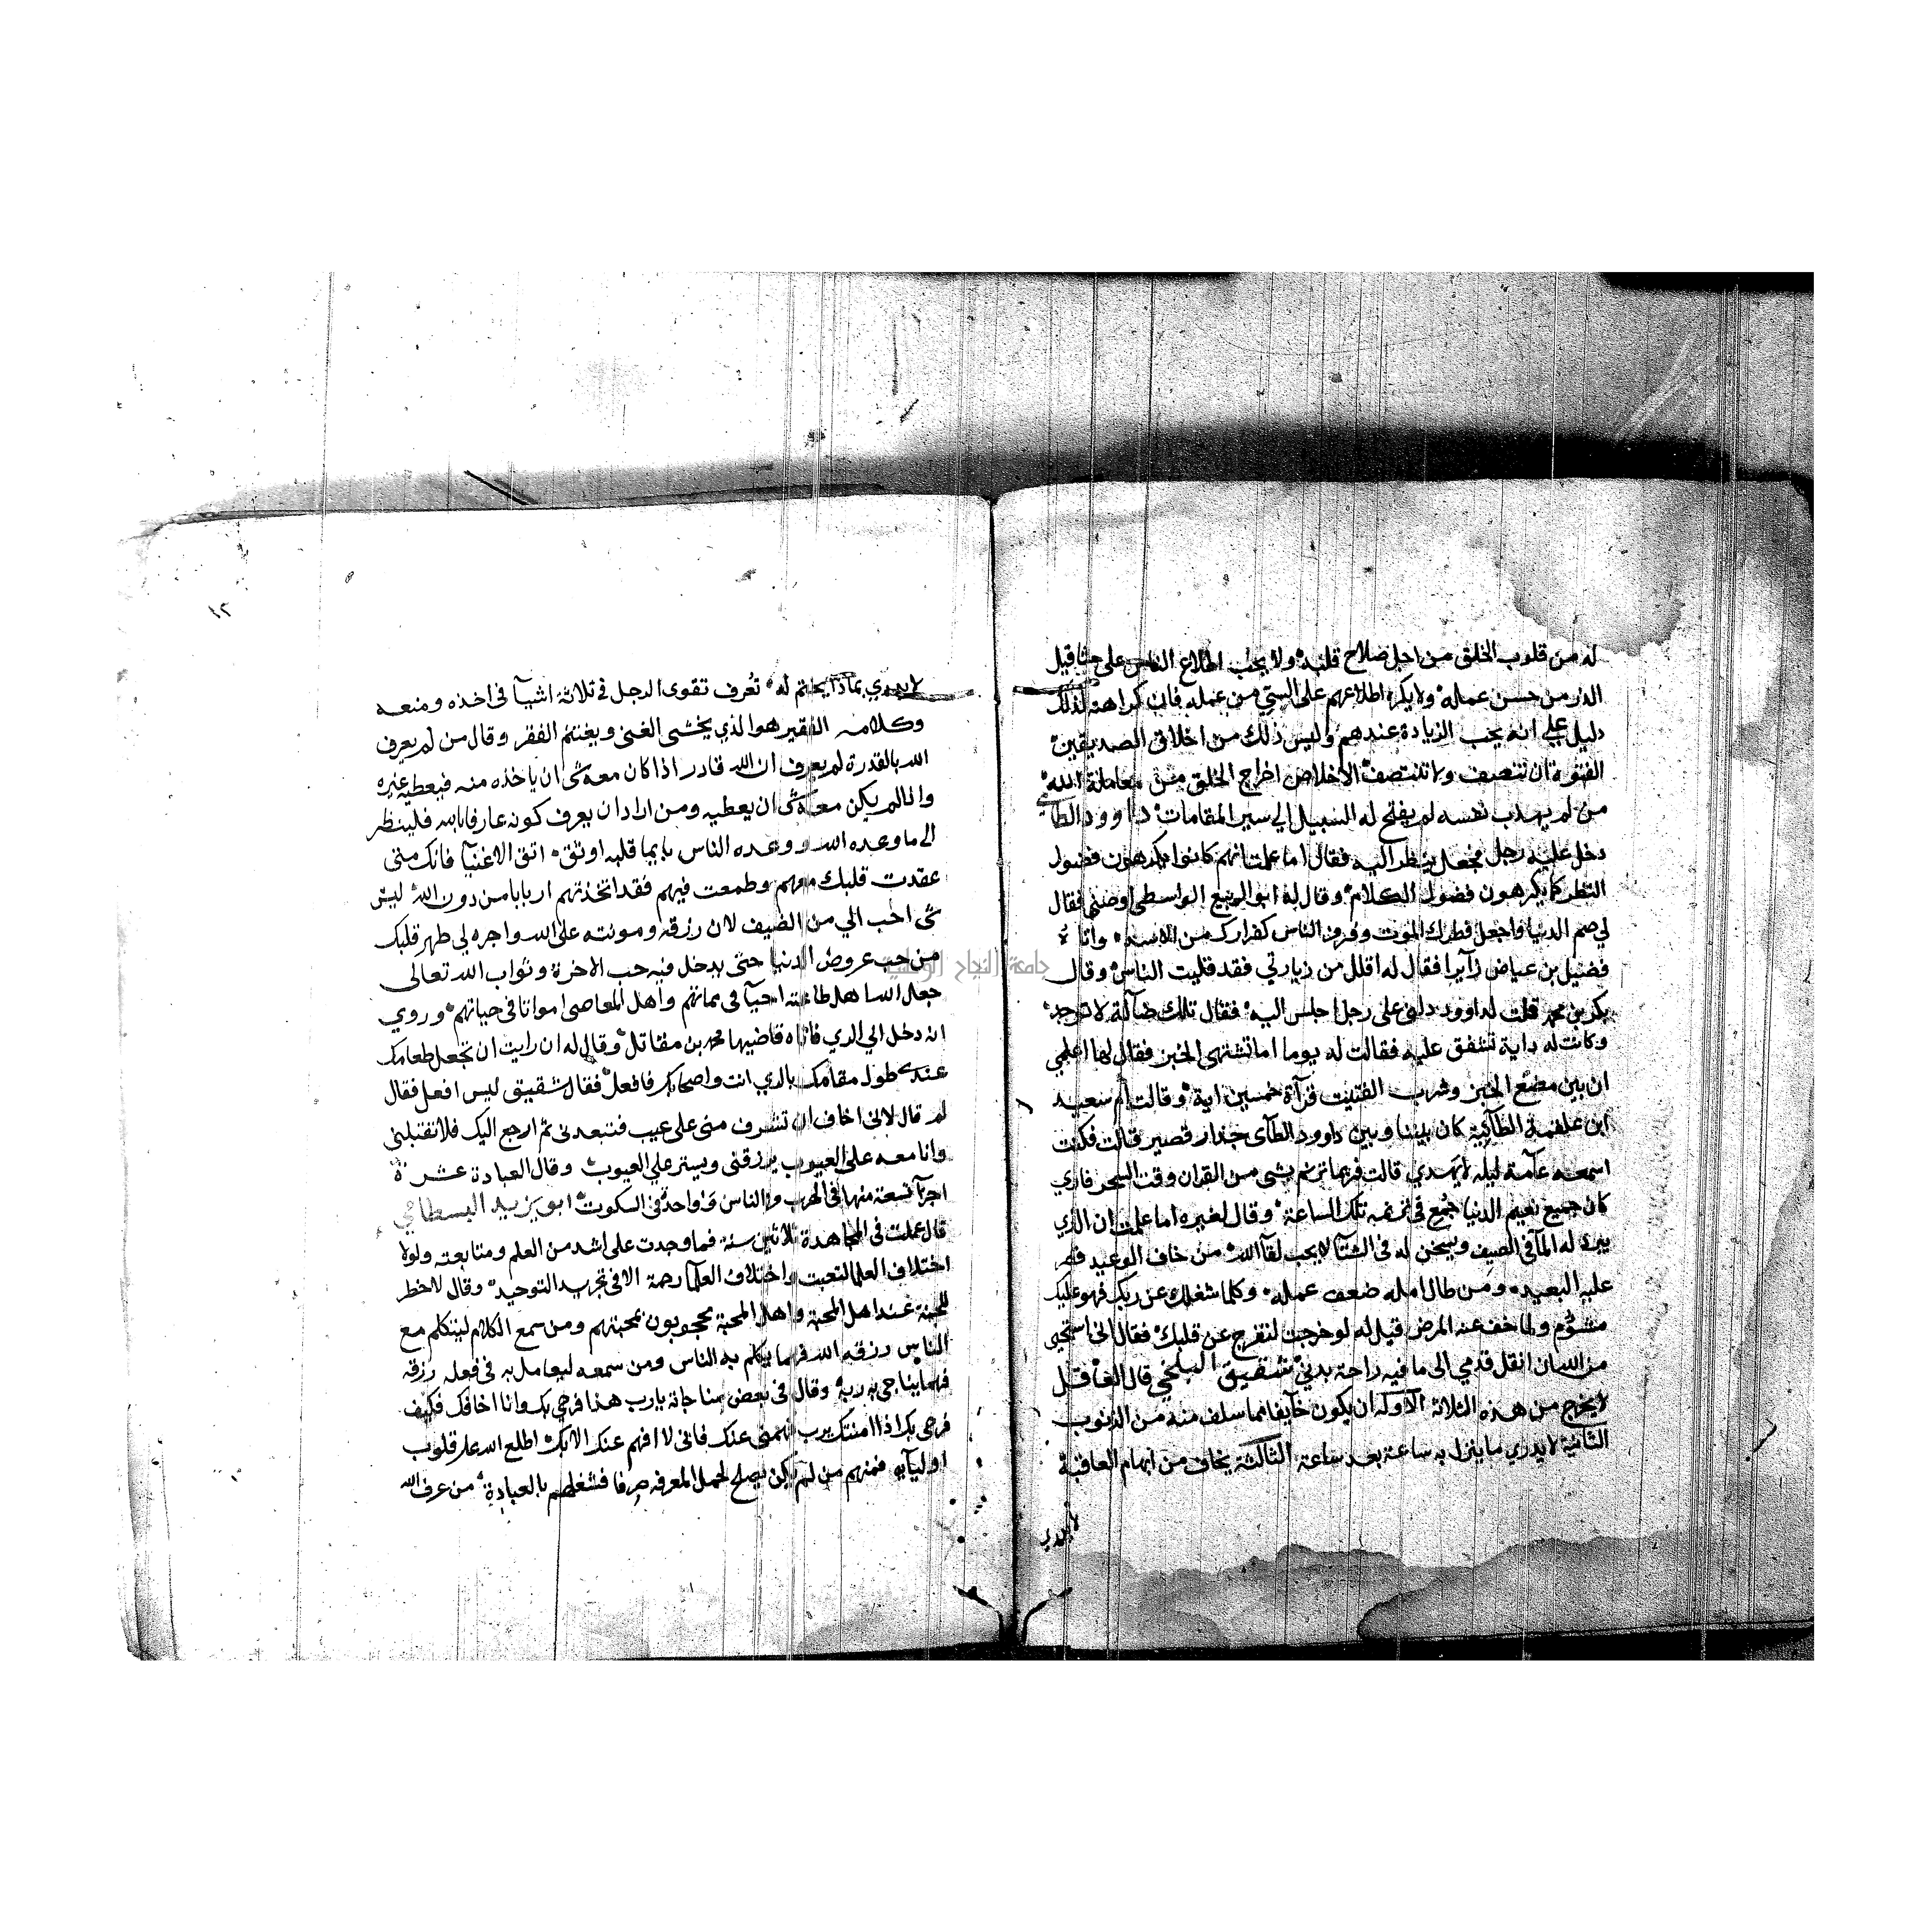 له من قلوب الخلق من اجل صلاح قلبه ولا يحب اطلاع الناس على مثاقيل
الذر من حسن عمله ولا يكره اطلاعهم على السيئ من عمله فان كراهته لذلك
دليل علي انه يحب الزيادة عندهم وليس ذلك من اخلاق الصديقين
الفتوة ان تنصف ولا تنتصف الاخلاص اخراج الخلق من معاملة الله
من لم يهذب نفسه لم يفتح له السبيل الي سير المقامات داوود الطاي
دخل عليه رجل فجعل ينظر اليه فقال اما علمت انهم كانوا يكرهون فضول
النظر كما يكرهون فضول الكلام وقال له ابو الربيع الواسطي اوصني فقال
لي صم الدنيا واجعل فطرك الموت وفر من الناس كفرارك من الاسد واتاه
فضيل بن عياض زآيرا فقال له اقلل من زيارتي فقد قليت الناس وقال
بكر بن محمد قلت لداوود دلني على رجل اجلس اليه فقال تلك ضآلة لا توجد
وكانت له داية تشفق عليه فقالت له يوما اما تشتهي الخبز فقال لها اعلمي
ان بين مضغ الخبز وشرب الفتيت قرآة خمسين اية وقالت ام سعيد
ابن علقمة الطآيية كان بيننا وبين داوود الطآى جدار قصير قالت فكنت
اسمعه عآمة ليله لا يهدي قالت فربما ترنم بشي من القران وقت السحر فاري
كان جميع نعيم الدنيا جمع في ترنمه تلك الساعة وقال لغيره اما علمت ان الذي
يبرد له المآ في الصيف ويسخن له في الشتآ لا يحب لقآ الله من خاف الوعيد قصر
عليه البعيد ومن طال امله ضعف عمله وكلما شغلك عن ربك فهو عليك
مشؤم ولما خف عنه المرض قيل له لو خرجت لتفرج عن قلبك فقال اني استحي
من الله ان انقل قدمي الى ما فيه راحة بدني شقيق البلخي قال العاقل
لا يخرج من هذه الثلاثة الاوله ان يكون خآيفا مما سلف منه من الذنوب
الثانية لا يدري ما ينزل به ساعة بعد ساعة الثالثة يخاف من ابهام العاقبة
لا يدري
١٢
لا يدري بماذا يختم له تعرف تقوى الرجل في ثلاثة اشيآ في اخذه ومنعه
وكلامه الفقير هو الذي يخشى الغنى ويغتنم الفقر وقال من لم يعرف
الله بالقدرة لم يعرف ان الله قادر اذا كان معه شى ان ياخذه منه فيعطيه غيره
واذا لم يكن معه شى ان يعطيه ومن اراد ان يعرف كونه عارفا بالله فلينظر
الى ما وعده الله ووعده الناس بايهما قلبه اوثق اتق الاغنيآ فانك متى
عقدت قلبك معهم وطمعت فيهم فقد اتخذتهم اربابا من دون الله ليس
شى احب الي من الضيف لان رزقه ومونته على الله واجره لي طهر قلبك
من حب عروض الدنيا حتى يدخل فيه حب الاخرة وثواب الله تعالى
جعل الله اهل طاعته احيآ في مماتهم واهل المعاصي امواتا في حياتهم وروي
انه دخل الي الري فاتاه قاضيها محمد بن مقاتل وقال له ان رايت ان تجعل طعامك
عندي طول مقامك بالري انت واصحابك فافعل فقال شقيق ليس افعل فقال
لم قال لاني اخاف ان تشرف مني على عيب فتبعدني ثم ارجع اليك فلا تقبلني
وانا معه على العيوب يرزقني ويستر علي العيوب وقال العبادة عشرة
اجزآ تسعة منها في الهرب من الناس وواحد في السكوت ابو يزيد البسطامي
قال عملت في المجاهدة ثلاثين سنة فما وجدت علي اشد من العلم ومتابعته ولولا
اختلاف العلما لتعبت واختلاف العلمآ رحمة الا في تجريد التوحيد وقال لا خطر
للجنة عند اهل المحبة واهل المحبة محجوبون بمحبتهم ومن سمع الكلام ليتكلم مع
الناس رزقه الله فهما يكلم به الناس ومن سمعه ليعامل به في فعله رزقه
فهما يناجي به ربه وقال في بعض مناجاته يا رب هذا فرحي بك وانا اخافك فكيف
فرحي بك اذا امنتك يرب فهمني عنك فاني لا افهم عنك الا بك اطلع الله على قلوب
اوليآيه فمنهم من لم يكن يصلح لحمل المعرفة صرفا فشغلهم بالعبادة من عرف الله
جامعة النجاح الوطنية